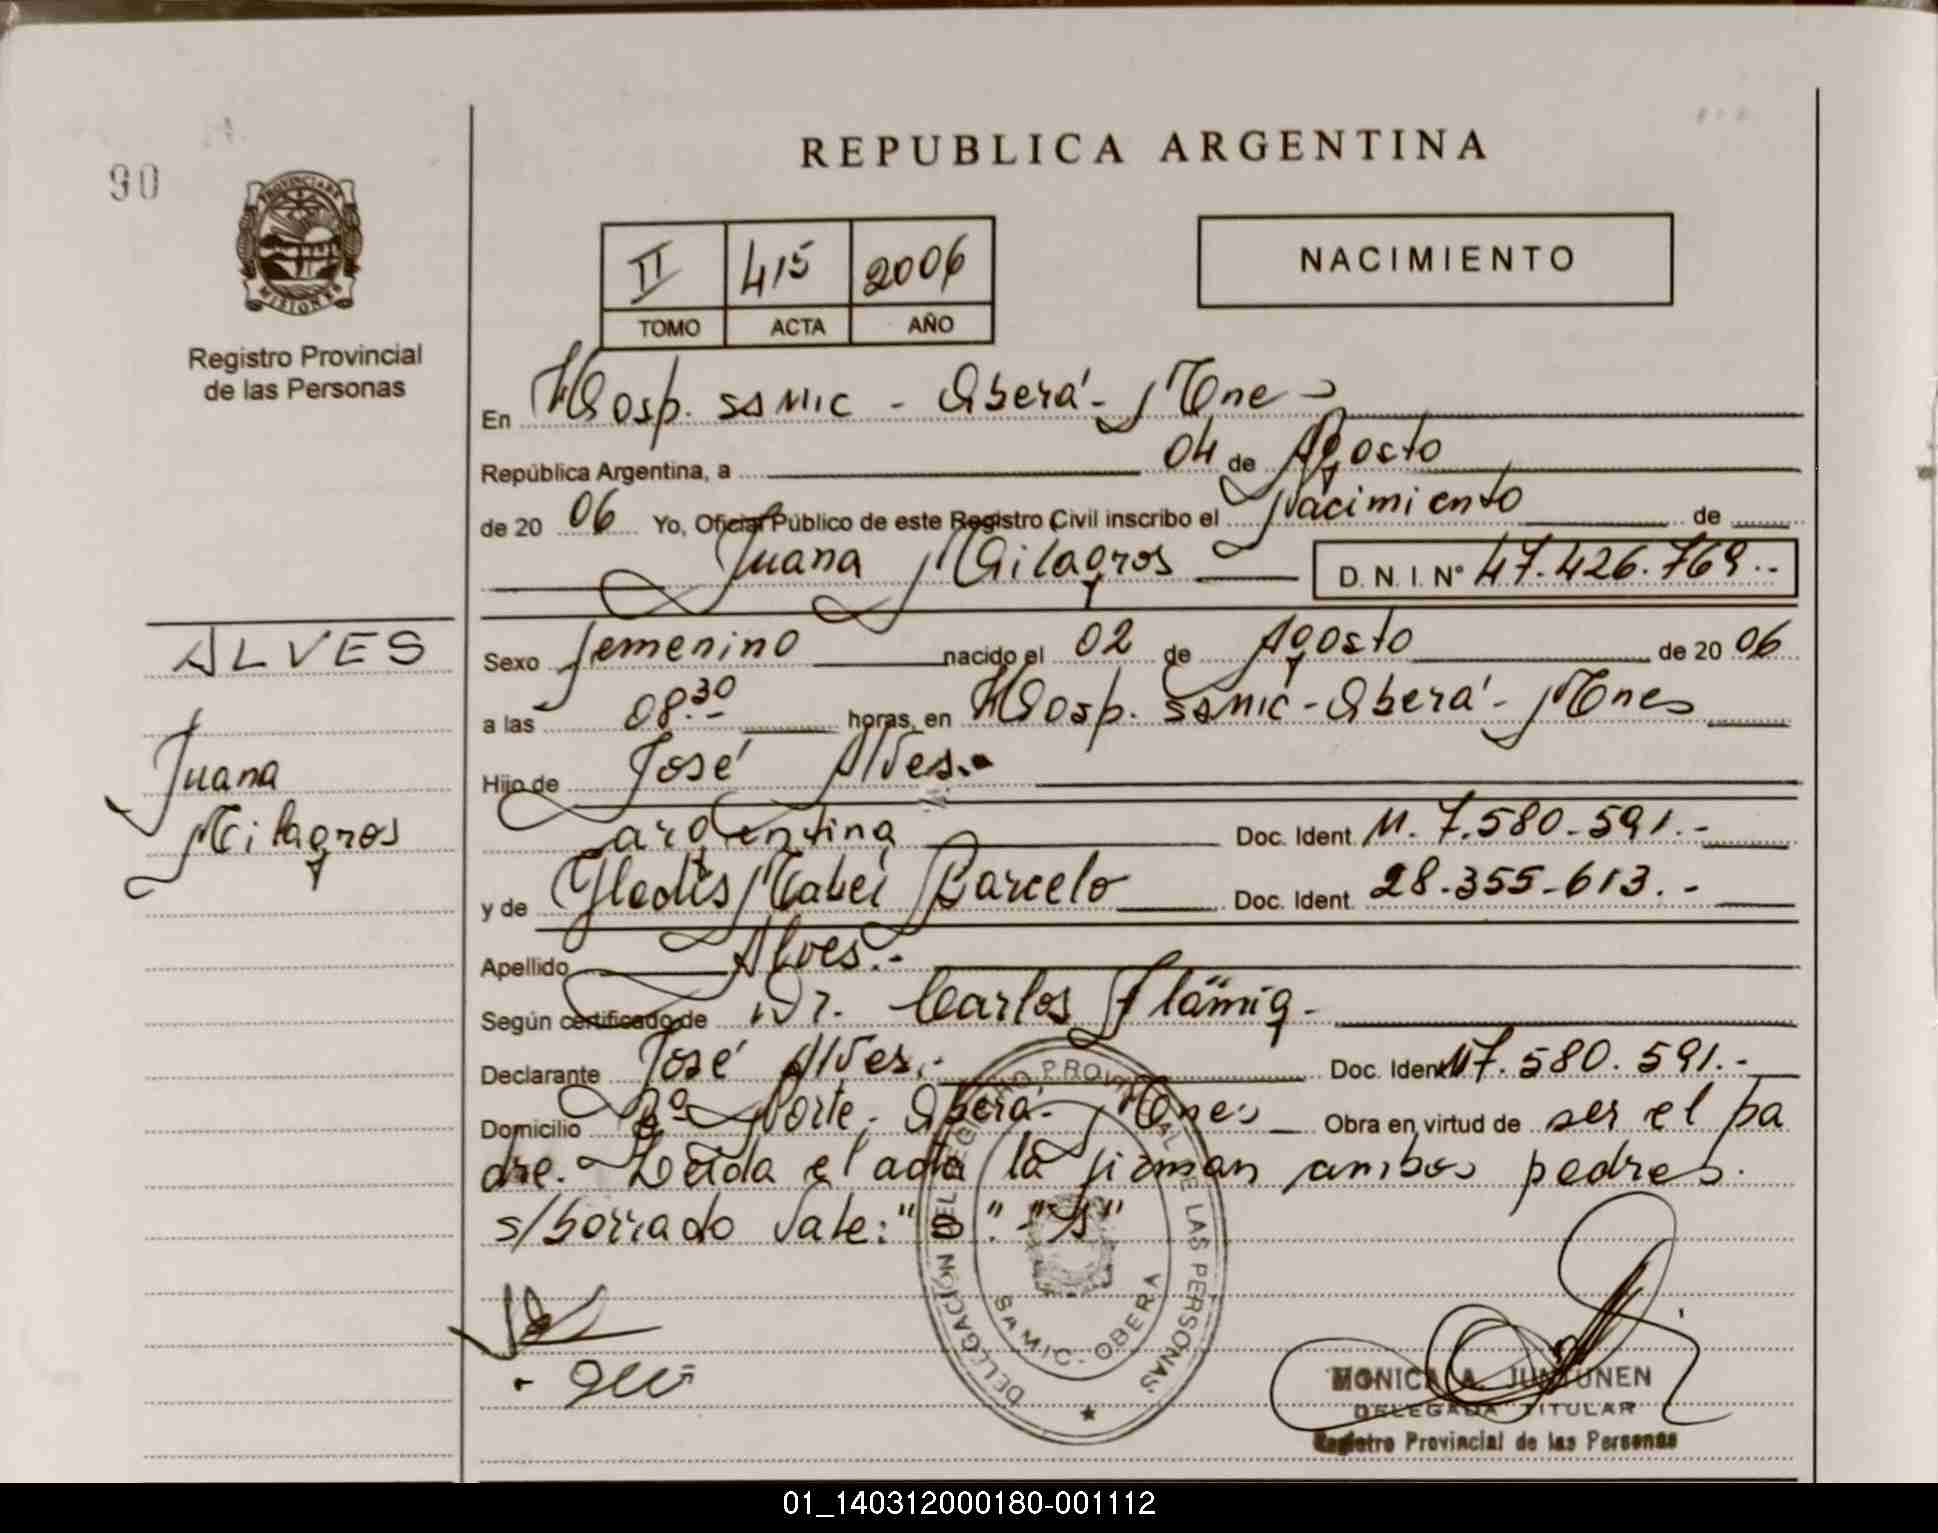 REPUBLICA ARGENTINA
90
PROVINCIA DE
MISIONES
Registro Provincial
de las Personas
II 415 2006
TOMO ACTA AÑO
NACIMIENTO
En Hosp. SAMIC - Oberá - Mnes
República Argentina, a 04 de Agosto
de 20 06 Yo, Oficial Público de este Registro Civil inscribo el Nacimiento de
Juana Milagros D. N. I. N° 47.426.769.-
ALVES
Juana
Milagros
Sexo femenino nacido el 02 de Agosto de 20 06
a las 08.30 horas, en Hosp. SAMIC - Oberá - Mnes
Hijo de José Alves.-
argentina Doc. Ident. M. 7.580.591.-
y de Gladis Mabel Barcelo Doc. Ident. 28.355.613.-
Apellido Alves.-
Según certificado de Dr. Carlos Flämig.-
Declarante José Alves.- Doc. Ident. M7.580.591.-
Domicilio Bº Norte - Oberá - Mnes Obra en virtud de ser el pa
dre. Leída el acta la firman ambos padres.
s/borrado Vale: "B". "s"
DELEGACIÓN DEL REGISTRO PROVINCIAL DE LAS PERSONAS
SAMIC - OBERA
MONICA A. JUNTUNEN
DELEGADA TITULAR
Registro Provincial de las Personas
01_140312000180-001112